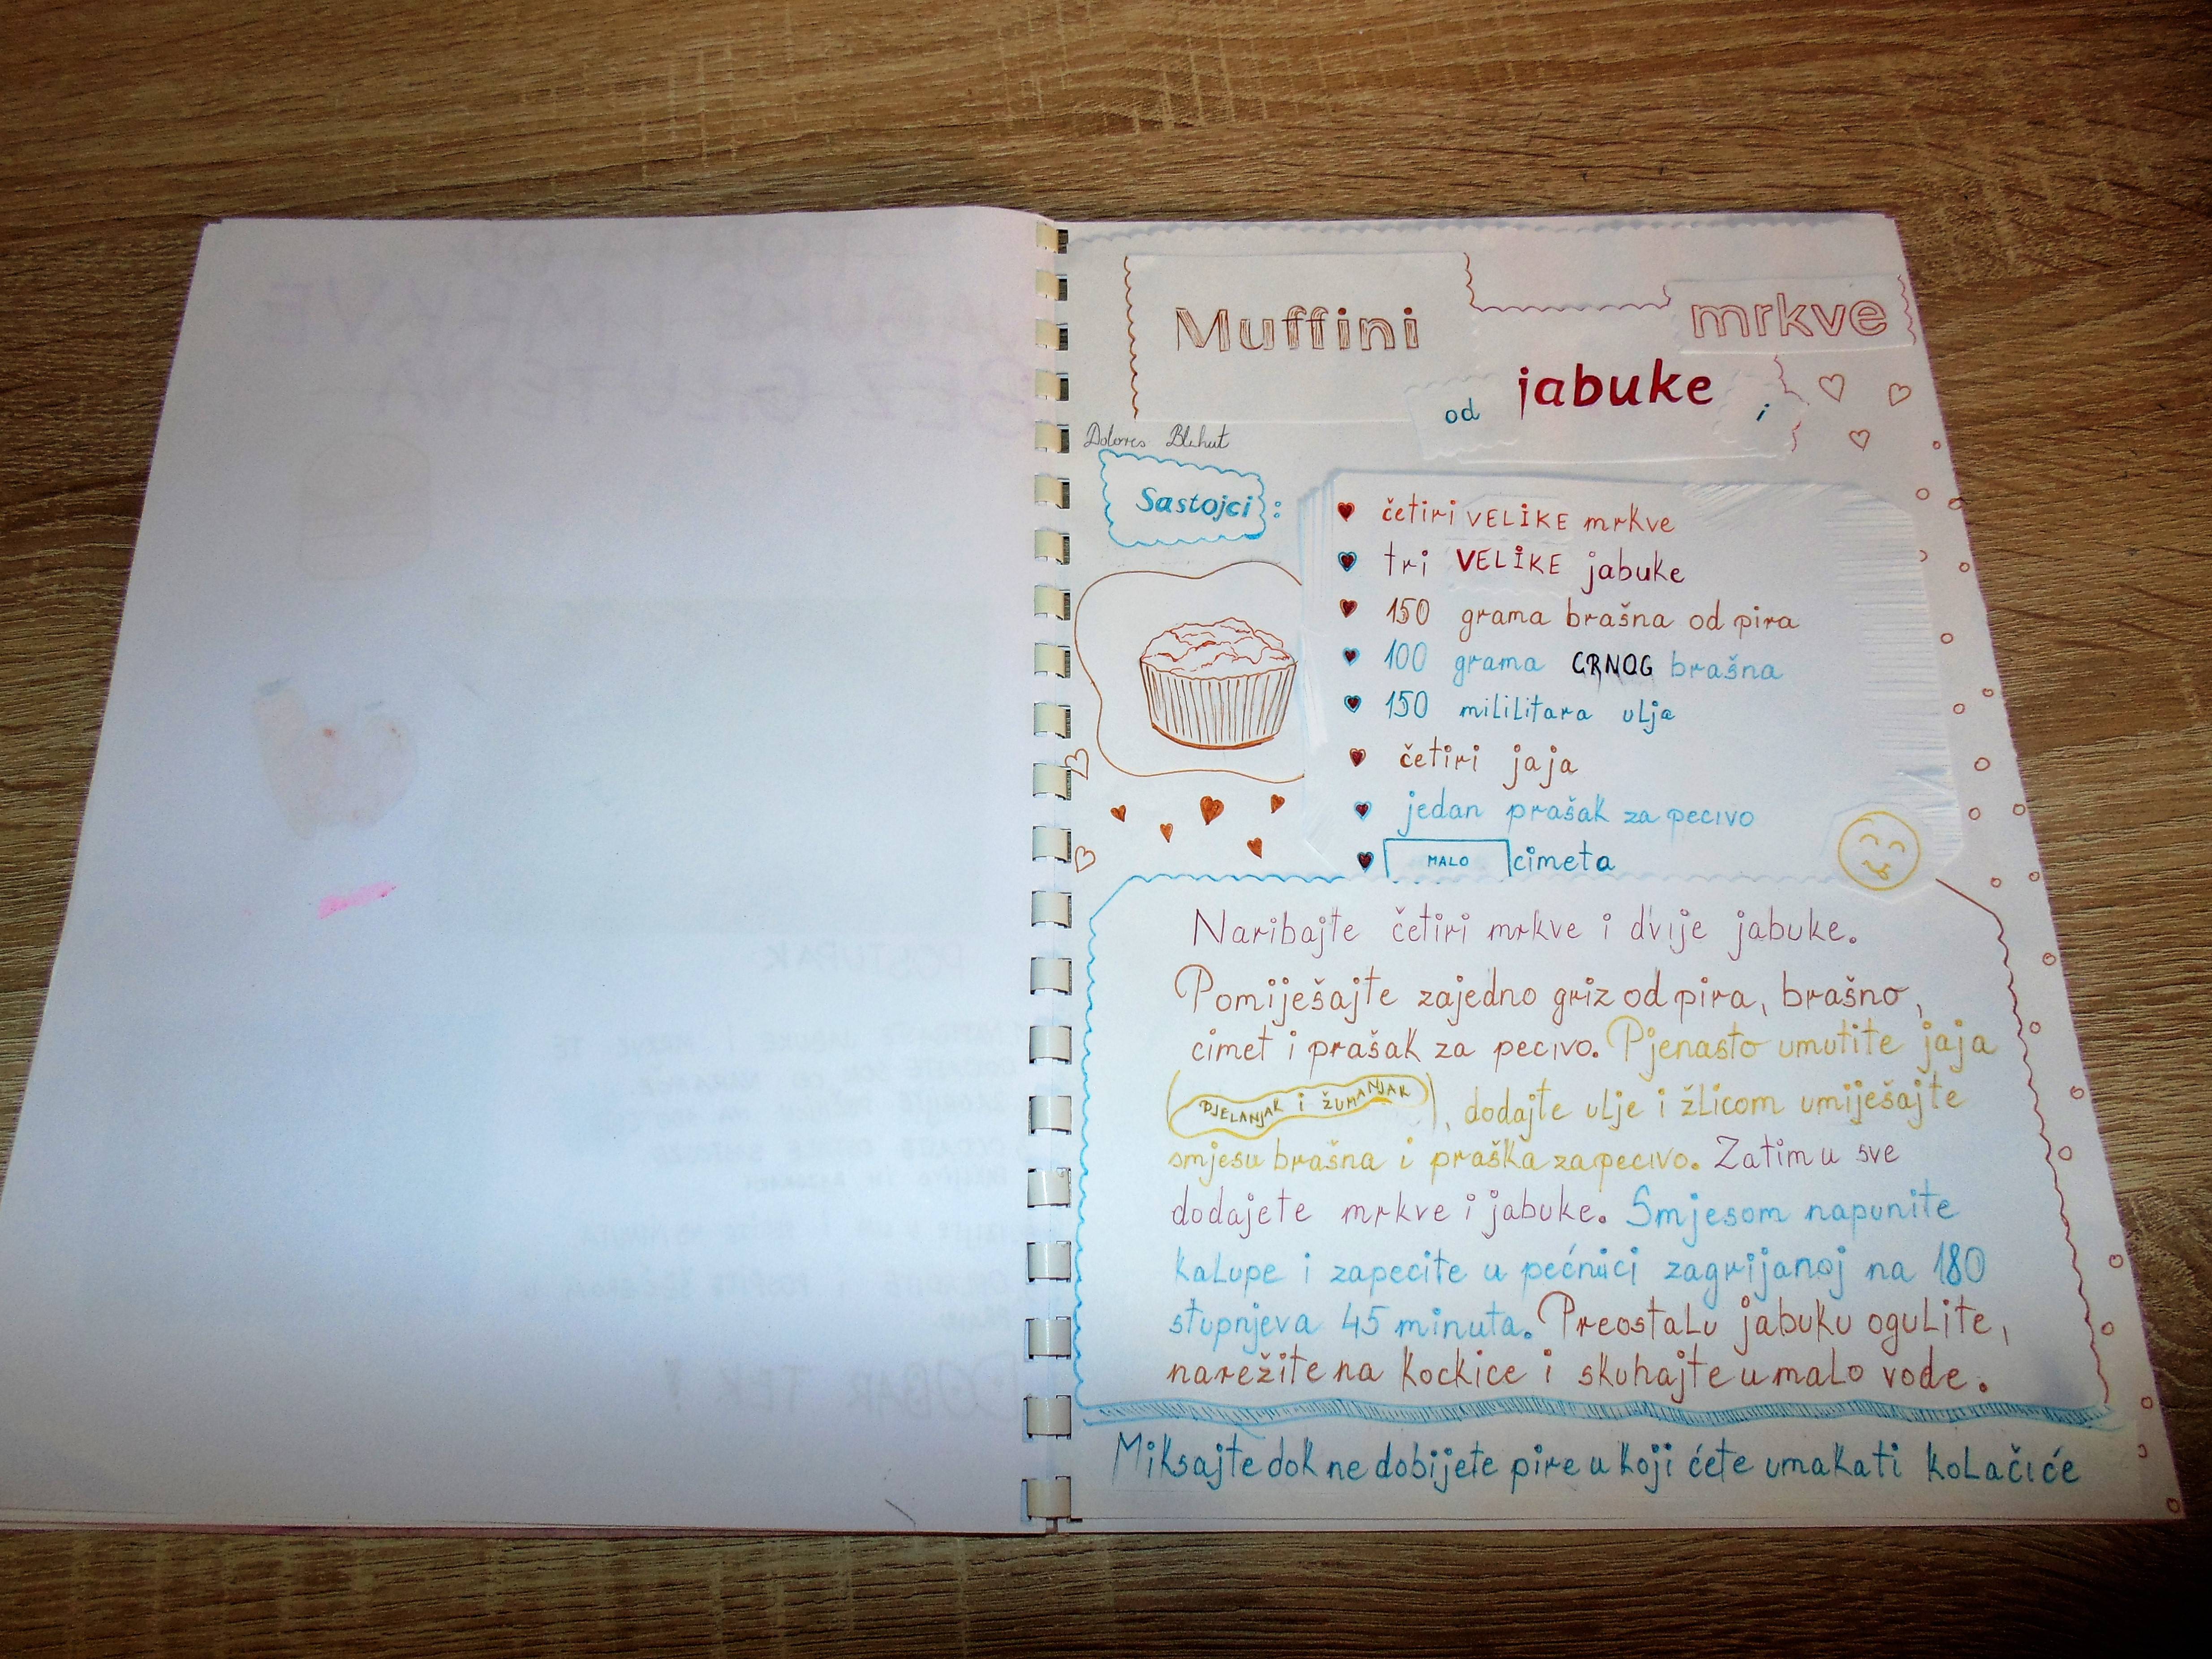 Muffini
od jabuke i mrkve
Dolores Blehut
Sastojci:
četiri VELIKE mrkve
tri VELIKE jabuke
150 grama brašna od pira
100 grama CRNOG brašna
150 mililitara ulja
četiri jaja
jedan prašak za pecivo
MALO cimeta
Naribajte četiri mrkve i dvije jabuke.
Pomiješajte zajedno griz od pira, brašno,
cimet i prašak za pecivo. Pjenasto umutite jaja
(BJELANJAK i ŽUMANJAK), dodajte ulje i žlicom umiješajte
smjesu brašna i praška za pecivo. Zatim u sve
dodajete mrkve i jabuke. Smjesom napunite
kalupe i zapecite u pećnici zagrijanoj na 180
stupnjeva 45 minuta. Preostalu jabuku ogulite,
narežite na kockice i skuhajte u malo vode.
Miksajte dok ne dobijete pire u koji ćete umakati kolačiće